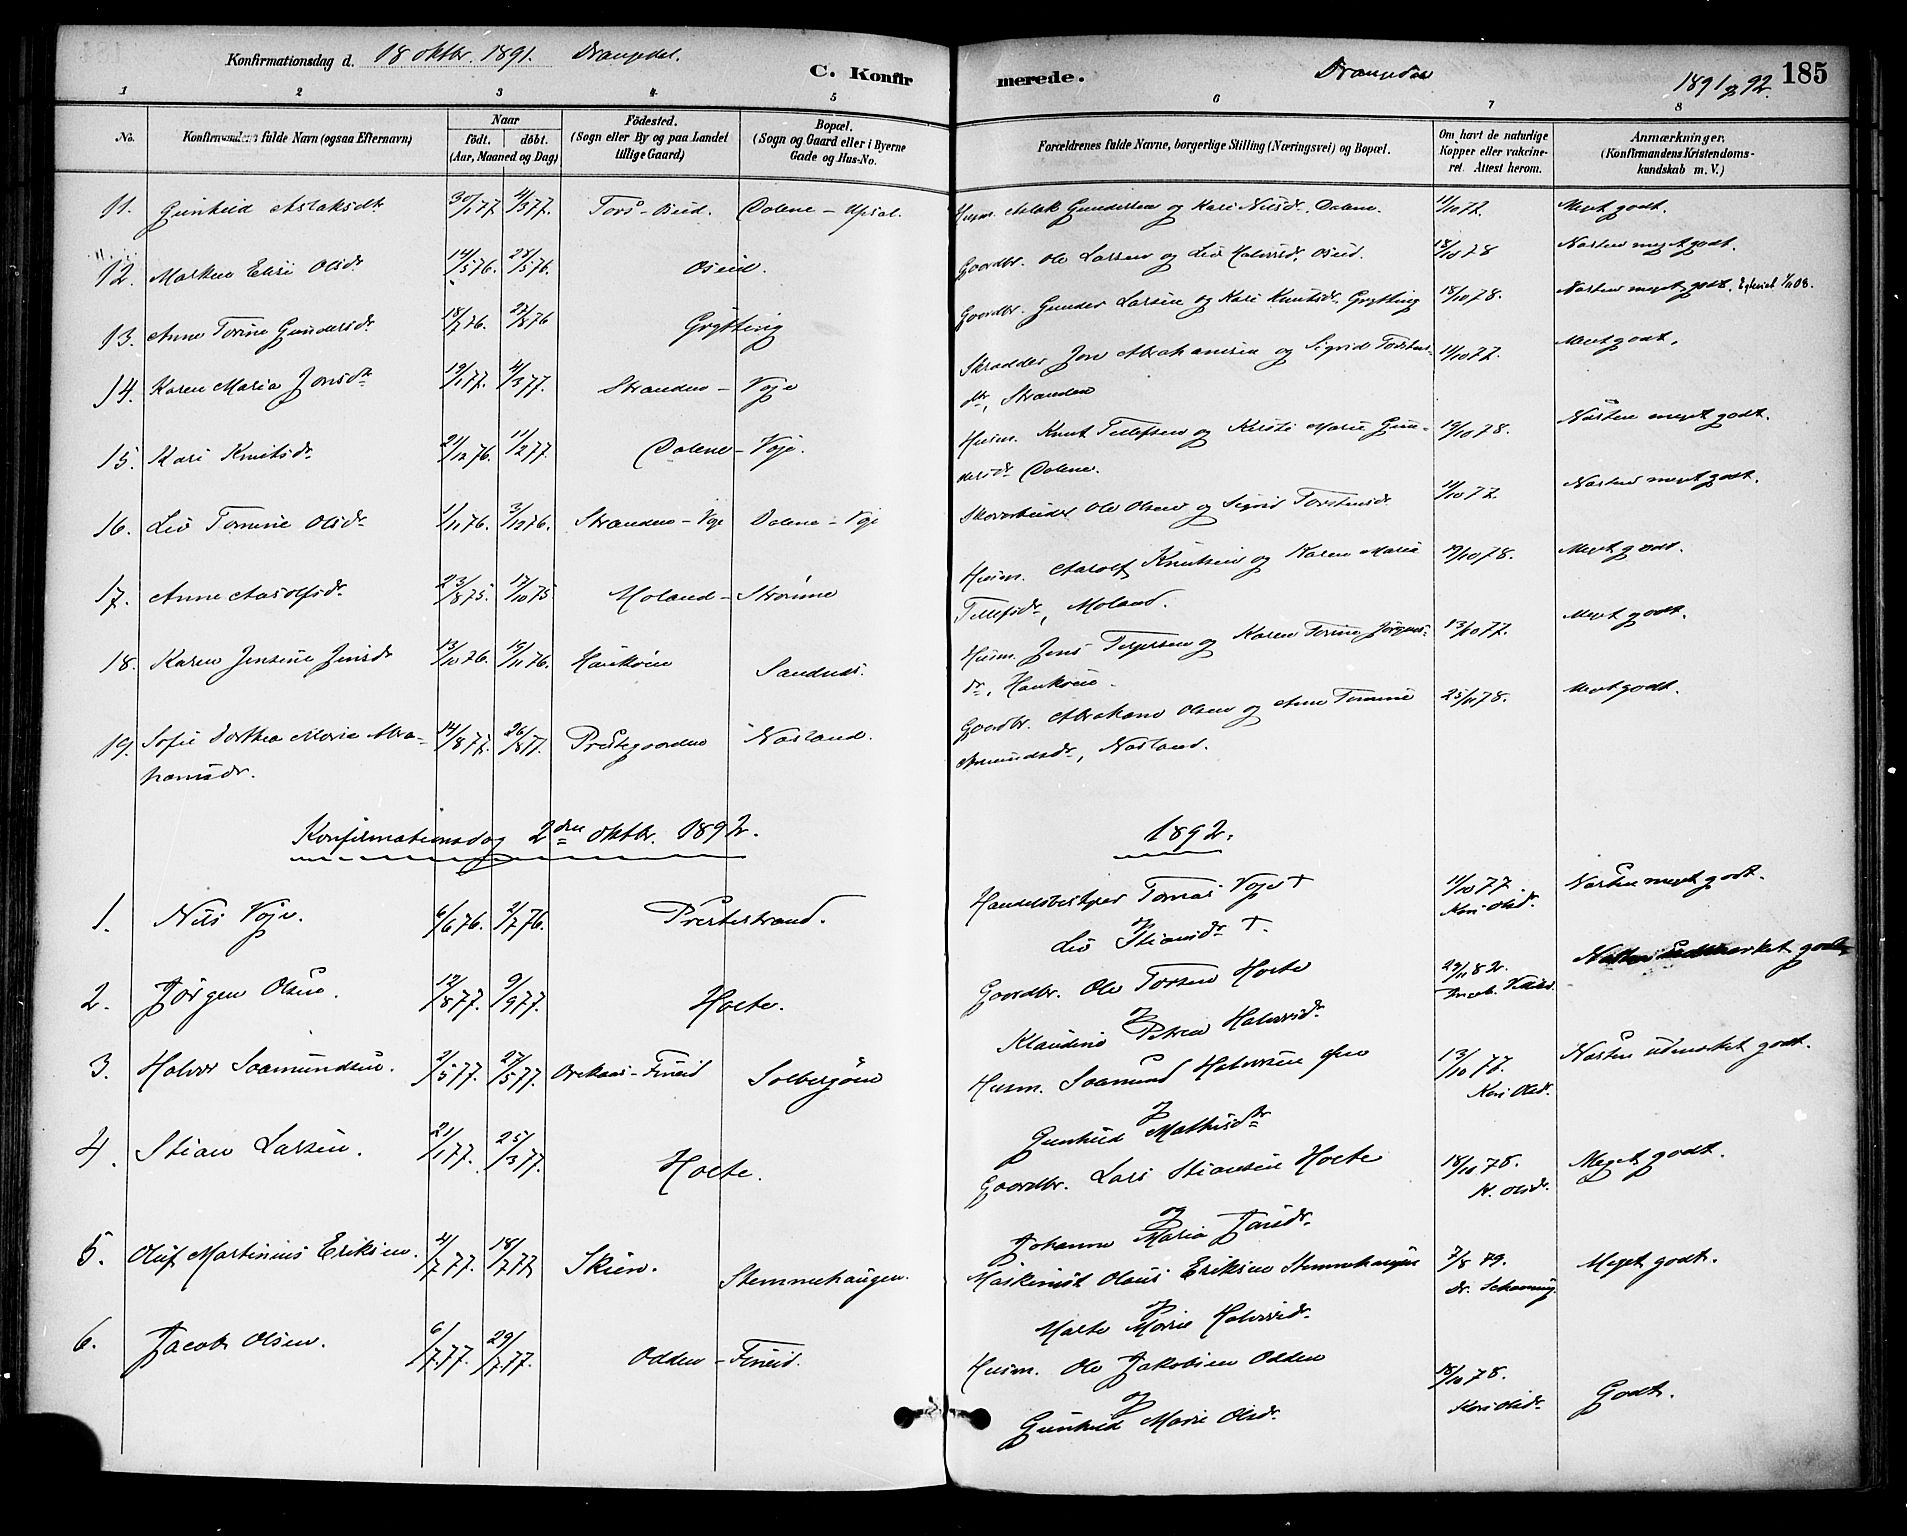 Konfirmationsdag d. 18 oktbr. 1891. Drangedal.
C. Konfirmerede.
Drangedal
1891 og 92.
185
1 2 3 4 5 6 7 8
No.
Konfirmandens fulde Navn (ogsaa Efternavn)
Naar
født. døbt.
(Aar, Maaned og Dag)
Fødested.
(Sogn eller By og paa Landet
tillige Gaard)
Bopæl.
(Sogn og Gaard eller i Byerne
Gade og Hus-No.
Forældrenes fulde Navne, borgerlige Stilling (Næringsvei) og Bopæl.
Om havt de naturlige
Kopper eller vakcine-
ret. Attest herom.
Anmærkninger.
(Konfirmandens Kristendoms-
kundskab m. V.)
11. Gunhild Aslaksdt. 30/1 77 4/3 77. Tors-Oseid. Dalene - Upsal. Husm. Aslak Gundersen og Kari Nilsdr. Dalene. 11/10 77. Meget godt.
12. Marken Elise Olsdr. 14/5 76. 28/5 76. Oseid. Gaardbr. Ole Larsen og Liv Halvorsdr. Oseid. 18/10 78 Næsten meget godt.
13. Anne Torine Gundersdr. 18/7 76. Grytting Gaardbr. Gunder Larsen og Kari Knutsdr. Grytting 18/10 78. Næsten meget godt.
14. Karen Maria Jonsdr. 19/1 77. 4/3 77. Stranden - Voje Skrædder Jon Abrahamsen og Sigrid Torstens-
dtr, Stranden 11/10 77. Meget godt.
15. Kari Knutsdr. 21/12 76. 11/2 77. Dalene - Voje. Husm. Knut Tellefsen og Kirsti Marie Gun-
dersdr. Dalene. 19/10 78. Næsten meget godt.
16. Liv Tomine Olsdr. 1/11 76. 3/12 76. Stranden - Voje Dalene - Voje Skovarbeider Ole Olsen og Sigrid Torstensdr. 11/10 77. Næsten meget godt.
17. Anne Aasolfsdr. 23/8 75. 17/10 75 Moland - Strømme Husm. Aasolf Knutsen og Karen Maria
Tellefsdr., Moland. 19/10 78. Meget godt.
18. Karen Jensine Jensdr. 13/10 76. 19/11 76. Haukøen Sandnes. Husm. Jens Terjersen og Karen Torine Jørgens-
dr., Haukøen. 13/10 77. Meget godt.
19. Sofie Dorthea Marie Abra-
hamsdr. 14/8 77. 26/8 77. Prestegaarden Nasland. Gaardbr. Abraham Olsen og Ane Tomine
Amundsdr., Nasland. 25/11 78. Meget godt.
Konfirmationsdag 2den oktbr. 1892.
1892.
1. Nils Voje. 6/6 76. 2/7 76. Prestestrand. Handelsbestyrer Tomas Voje †
og
Liv Stiansdr. †. 11/10 77. Kari Olsdr. Næsten meget godt.
2. Jørgen Olsen. 12/8 77. 9/9 77. Holte. Gaardbr. Ole Torsen Holte
og
Klaudine Petrea Halvorsdr. 29/11 82. Næsten udmærket godt.
3. Halvor Saamundsen. 2/5 77. 27/5 77. Fineid Solbergøen Husm. Saamund Halvorsen
og
Gunhild Mathisdtr. 13/10 77. Kari Olsdr. Næsten udmærket godt.
4. Stian Larsen. 21/1 77. 25/3 77. Holte. Gaardbr. Lars Stiansen Holte
og
Johanne Maria Jansdr. 18/10 78. K. Olsdr. Meget godt.
5. Oluf Martinius Eriksen. 4/7 77. 18/7 77 Skien. Stemmehaugen. Maskinist Olaus Eriksen Stemmehaugen
og
Marte Marie Halvorsdr. 7/8 79. Dr. Schanning Meget godt.
6. Jacob Olsen. 6/7 77. 29/7 77. Odden - Fineid. Husm. Ole Jakobsen Odden
og
Gunhild Marie Olsdr. 18/10 78. Kari Olsdr. Godt.